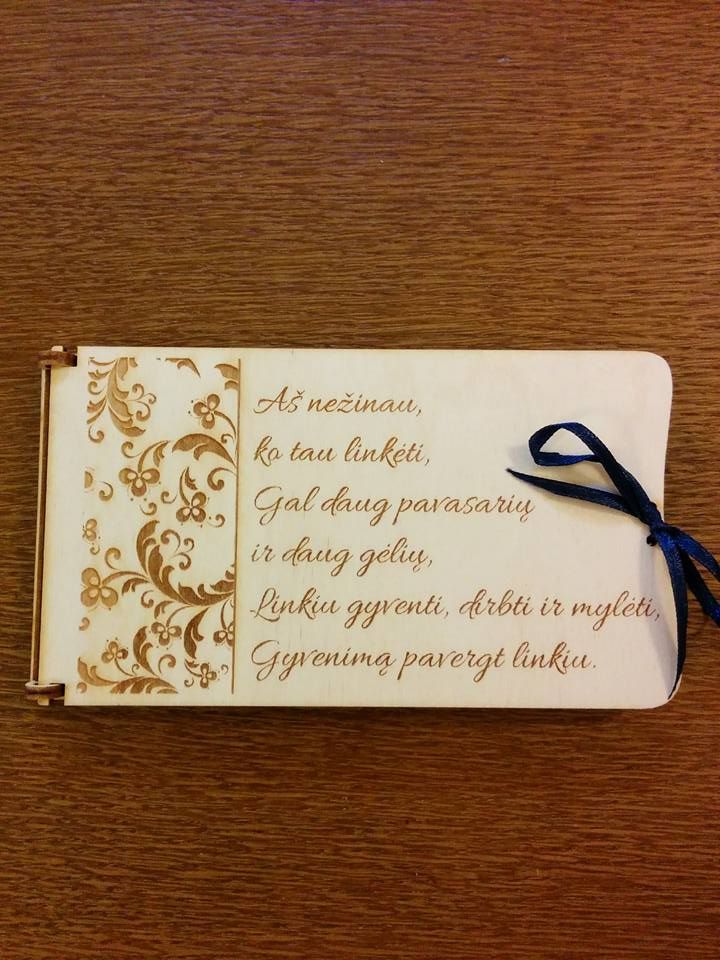 Aš nežinau,
ko tau linkėti,
Gal daug pavasarių
ir daug gėlių,
Linkiu gyventi, dirbti ir mylėti,
Gyvenimą pavergt linkiu.